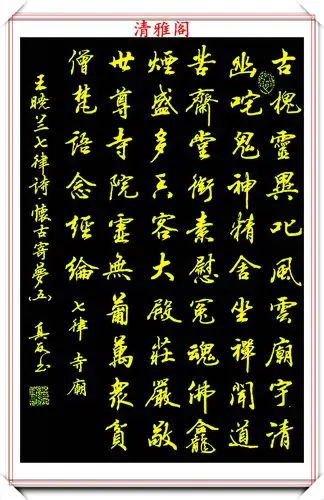 清雅阁
古槐靈異叱風雲廟宇清
幽咤鬼神精舍坐禪聞道
苦齋堂銜素慰冤魂佛龕
煙盛多客大殿莊嚴敬
世尊寺院無葡萬衆貪
僧梵語念經綸 七律 寺廟
王曉兰七律诗·懷古寄夢(五) 真石书